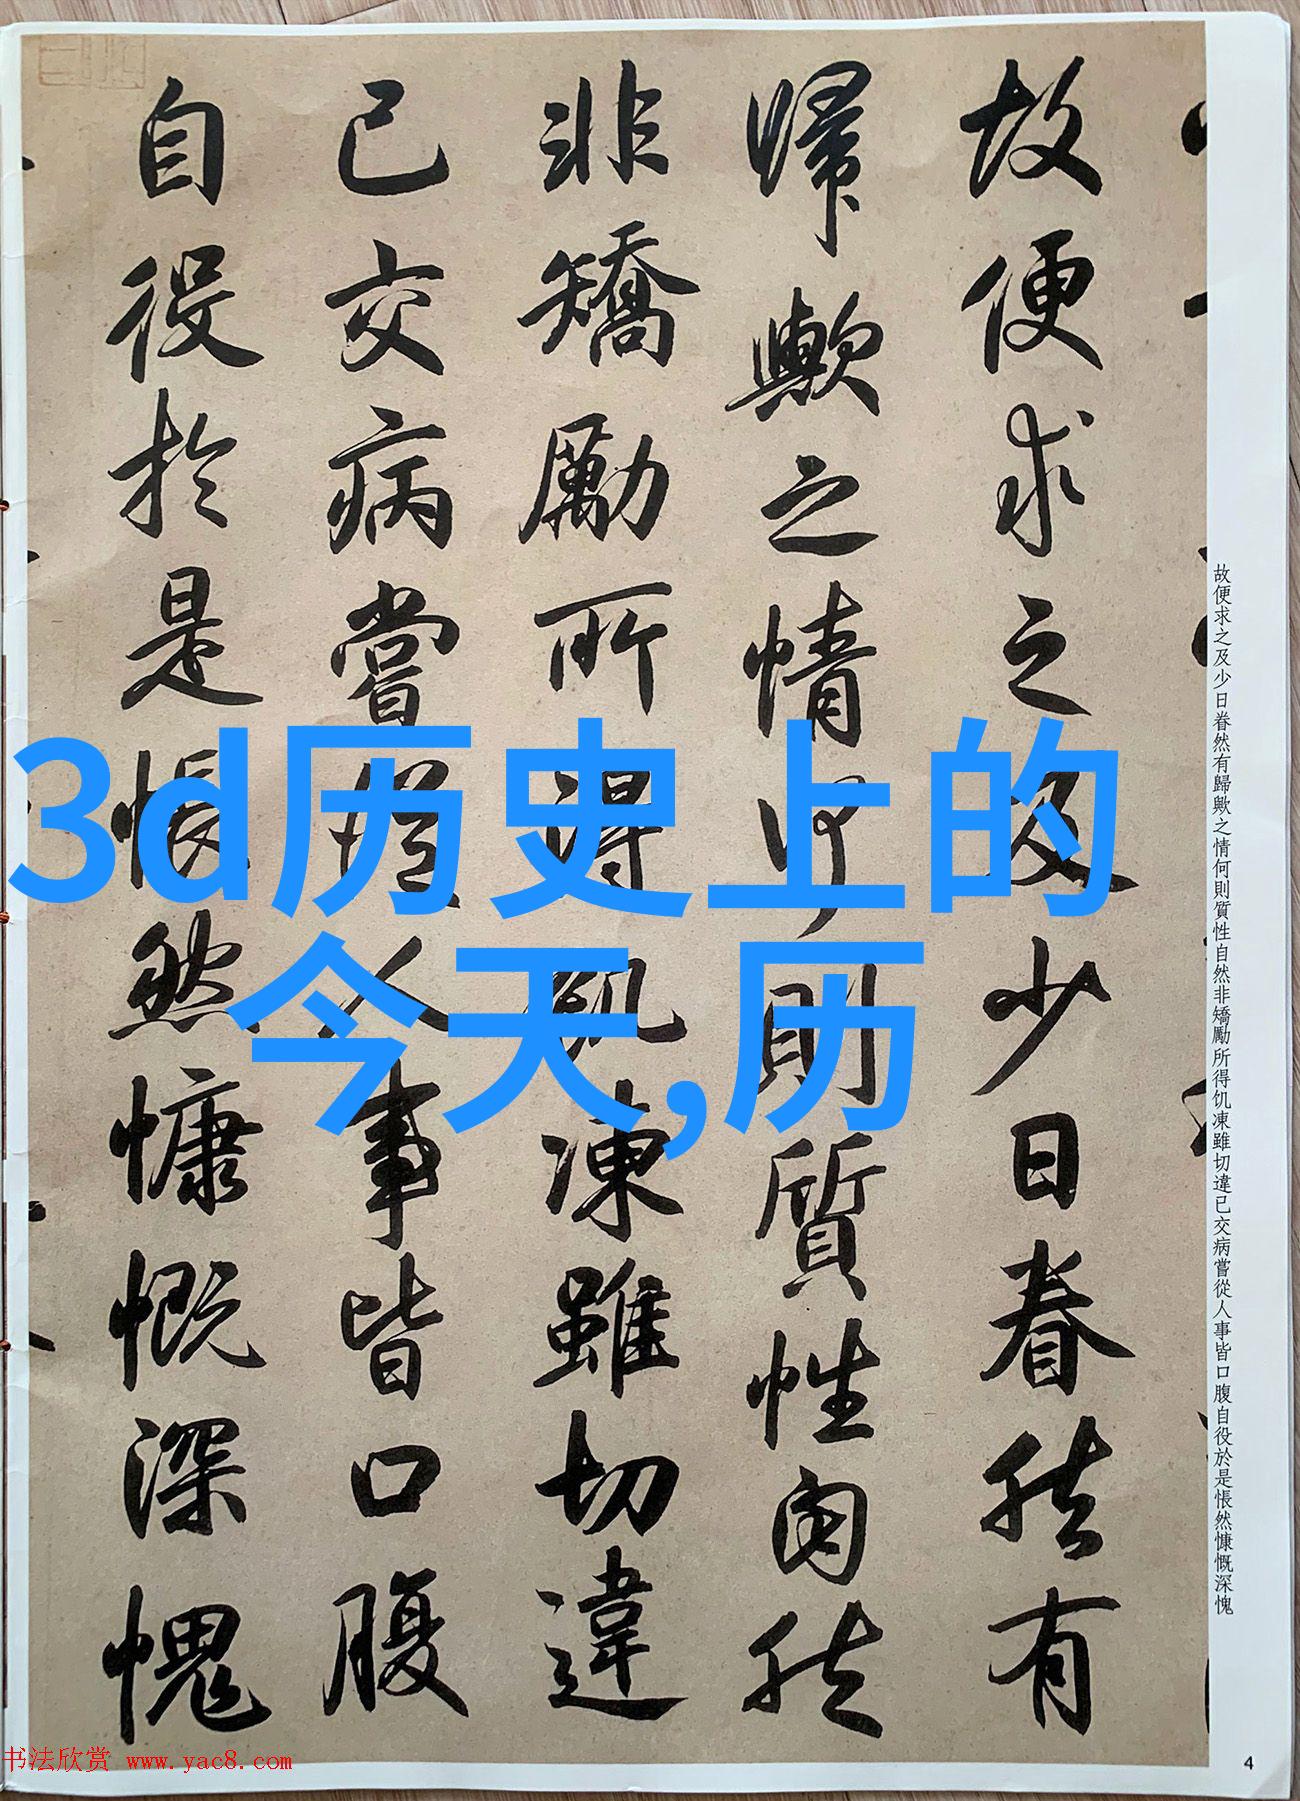 故便求之及少日眷然有
歸歟之情何則質性自然
非矯勵所得飢凍雖切違
已交病嘗從人事皆口腹
自役於是悵然慷慨深愧
故便求之及少日眷然有歸歟之情何則質性自然非矯勵所得饥凍雖切違已交病嘗從人事皆口腹自役於是悵然慷慨深愧
3d历史上的
今天,历
书法欣赏 www.yac8.com
4